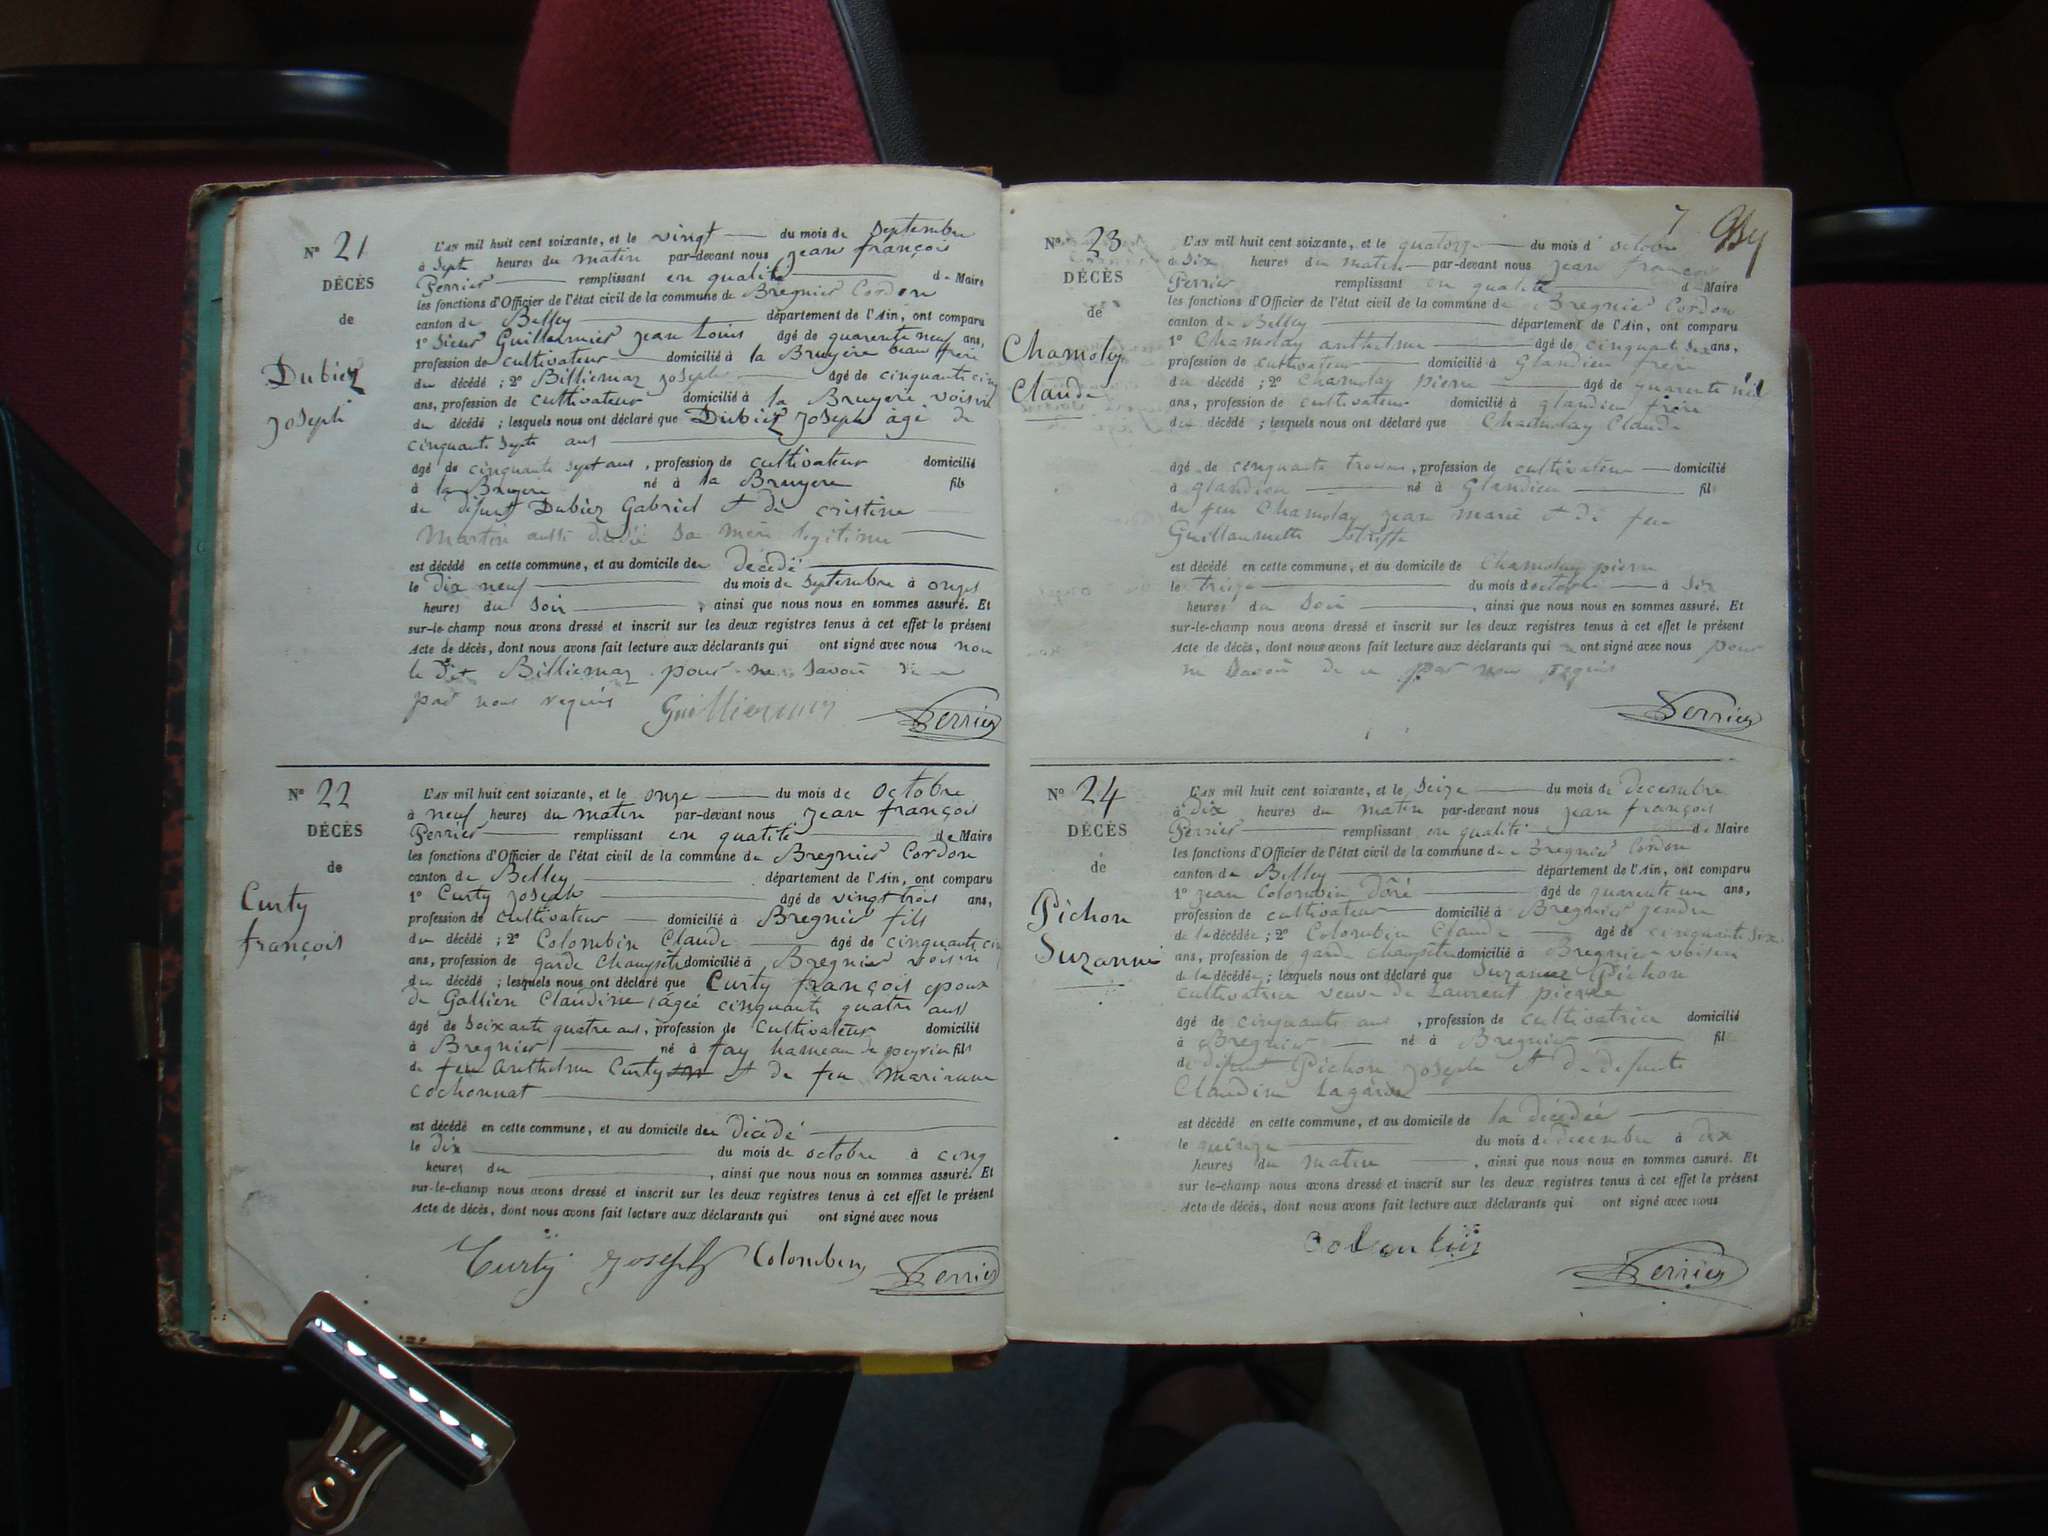 N° 21
DÉCÈS
de
Dubiez
Joseph
L'AN mil huit cent soixante, et le vingt du mois de Septembre
à Sept heures du matin par-devant nous jean françois
Perrier remplissant en qualité de Maire
les fonctions d'Officier de l'état civil de la commune de Bregnier Cordon
canton de Belley département de l'Ain, ont comparu
1° Sieur Guillermier jean Louis âgé de quarente neuf ans,
profession de cultivateur domicilié à la Bruyere beau frere
du décédé ; 2° Billiemaz joseph âgé de cinquante cinq
ans, profession de cultivateur domicilié à la Bruyere voisin
du décédé ; lesquels nous ont déclaré que Dubiez Joseph âgé de
cinquante Sept ans
âgé de cinquante sept ans, profession de cultivateur domicilié
à la Bruyere né à la Bruyere fils
de défunt Dubiez Gabriel et de cristine
Martin aussi décédé sa mère legitime
est décédé en cette commune, et au domicile du décédé
le dix neuf du mois de septembre à onzes
heures du Soir, ainsi que nous nous en sommes assuré. Et
sur-le-champ nous avons dressé et inscrit sur les deux registres tenus à cet effet le présent
Acte de décès, dont nous avons fait lecture aux déclarants qui ont signé avec nous non
le dit Billiemaz pour ne savoir de ce
par nous requis Guilliermier Perrier
N° 22
DÉCÈS
de
Curty
françois
L'AN mil huit cent soixante, et le onze du mois de octobre
à neuf heures du matin par-devant nous jean françois
Perrier remplissant en qualité de Maire
les fonctions d'Officier de l'état civil de la commune de Bregnier Cordon
canton de Belley département de l'Ain, ont comparu
1° Curty joseph âgé de vingt trois ans,
profession de cultivateur domicilié à Bregnier fils
du décédé ; 2° Colombin Claude âgé de cinquante cinq
ans, profession de garde champêtre domicilié à Bregnier voisin
du décédé ; lesquels nous ont déclaré que Curty françois epoux
de Gallien Claudine agée cinquante quatre ans
âgé de soixante quatre ans, profession de cultivateur domicilié
à Bregnier né à fay hameau de peyrieu fils
de feu anthelme Curty et de feu Marianne
Cochonnat
est décédé en cette commune, et au domicile du décédé
le dix du mois de octobre à cinq
heures du , ainsi que nous nous en sommes assuré. Et
sur-le-champ nous avons dressé et inscrit sur les deux registres tenus à cet effet le présent
Acte de décès, dont nous avons fait lecture aux déclarants qui ont signé avec nous
Curty joseph Colombin Perrier
7
N° 23
DÉCÈS
de
Chamolay
Claude
L'AN mil huit cent soixante, et le quatorze du mois d'octobre
à Dix heures du matin par-devant nous jean françois
Perrier remplissant en qualité de Maire
les fonctions d'Officier de l'état civil de la commune de Bregnier Cordon
canton de Belley département de l'Ain, ont comparu
1° Chamolay anthelme âgé de cinquante six ans,
profession de cultivateur domicilié à Glandieu frere
du décédé ; 2° Chamolay pierre âgé de quarente
ans, profession de cultivateur domicilié à glandieu frère
du décédé ; lesquels nous ont déclaré que Chamolay Claude
âgé de cinquante trois ans, profession de cultivateur domicilié
à glandieu né à Glandieu fils
de feu Chamolay jean marie et de feu
Guillaumette
est décédé en cette commune, et au domicile de Chamolay pierre
le treize du mois d octobre à six
heures du soir, ainsi que nous nous en sommes assuré. Et
sur-le-champ nous avons dressé et inscrit sur les deux registres tenus à cet effet le présent
Acte de décès, dont nous avons fait lecture aux déclarants qui ont signé avec nous pour
ne savoir de ce par nous requis
Perrier
N° 24
DÉCÈS
de
Pichon
Suzanne
L'AN mil huit cent soixante, et le seize du mois de decembre
à dix heures du matin par-devant nous jean françois
Perrier remplissant en qualité de Maire
les fonctions d'Officier de l'état civil de la commune de Bregnier Cordon
canton de Belley département de l'Ain, ont comparu
1° jean Colombin Doré âgé de quarente un ans,
profession de cultivateur domicilié à Bregnier gendre
de la décédée ; 2° Colombin Claude âgé de cinquante six
ans, profession de garde champêtre domicilié à Bregnier voisin
de la décédée ; lesquels nous ont déclaré que Suzanne Pichon
cultivatrice veuve de Laurent pierre
âgé de cinquante ans, profession de cultivatrice domicilié
à Bregnier né à Bregnier fil
de défunt Pichon Joseph et de defunte
Claudine Lagarde
est décédé en cette commune, et au domicile de la décédée
le quinze du mois de decembre à dix
heures du matin, ainsi que nous nous en sommes assuré. Et
sur le-champ nous avons dressé et inscrit sur les deux registres tenus à cet effet le présent
Acte de décès, dont nous avons fait lecture aux déclarants qui ont signé avec nous
Colombin
Perrier